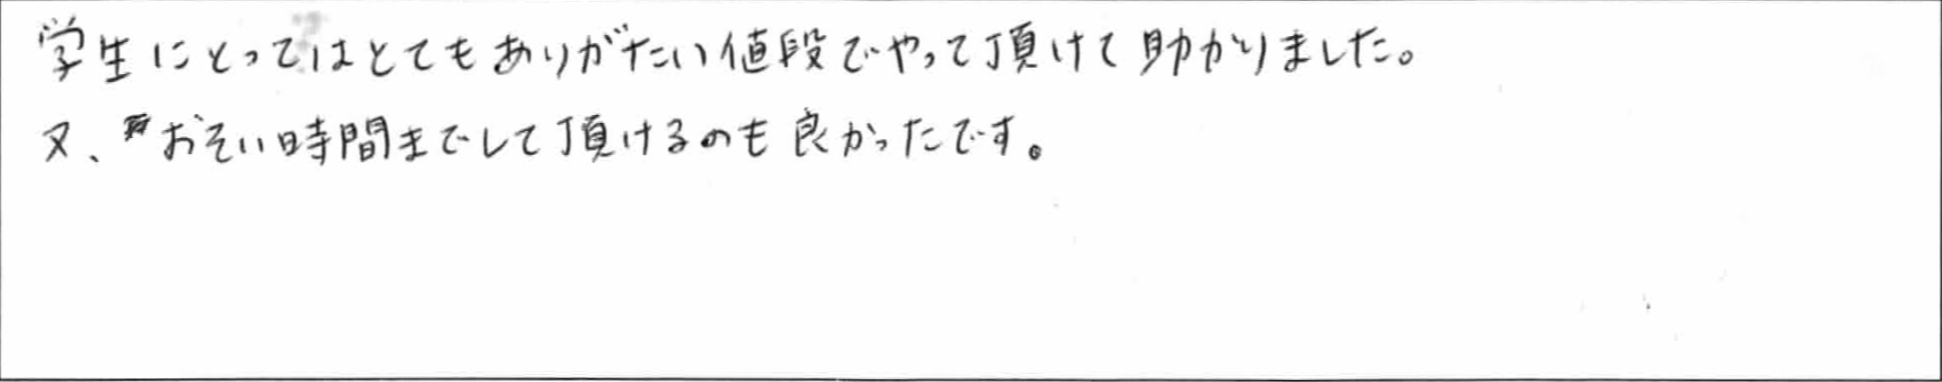 学生にとってはとてもありがたい値段でやって頂けて助かりました。
又、おそい時間までして頂けるのも良かったです。